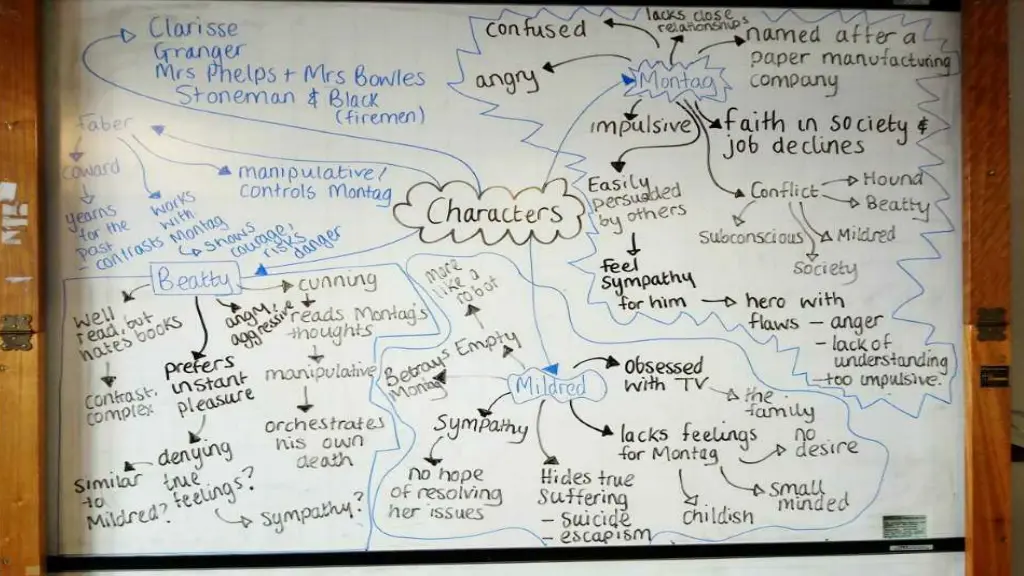 Clarisse
Granger
Mrs Phelps + Mrs Bowles
Stoneman & Black
(firemen)
Faber
coward
yearns
for the
past
- contrasts Montag
works
with
shows
courage,
risks
danger
manipulative/
controls Montag
Characters
confused
lacks close
relationships
named after a
paper manufacturing
company
angry
Montag
impulsive
Faith in society &
job declines
Easily
persuaded
by others
Conflict
Hound
Beatty
Mildred
society
subconscious
feel
sympathy
for him
hero with
flaws - anger
- lack of
understanding
- too impulsive.
Beatty
Well
read, but
hates books
contrast,
complex
prefers
instant
pleasure
denying
true
feelings?
similar
to
Mildred?
Sympathy?
angry &
aggressive
cunning
reads Montag's
thoughts
manipulative
orchestrates
his own
death
more
like a
robot
Empty
Betrays
Montag
Mildred
obsessed
with TV
the
family
Sympathy
no hope
of resolving
her issues
Hides true
suffering
- suicide
- escapism
lacks feelings
for Montag
no
desire
small
minded
childish